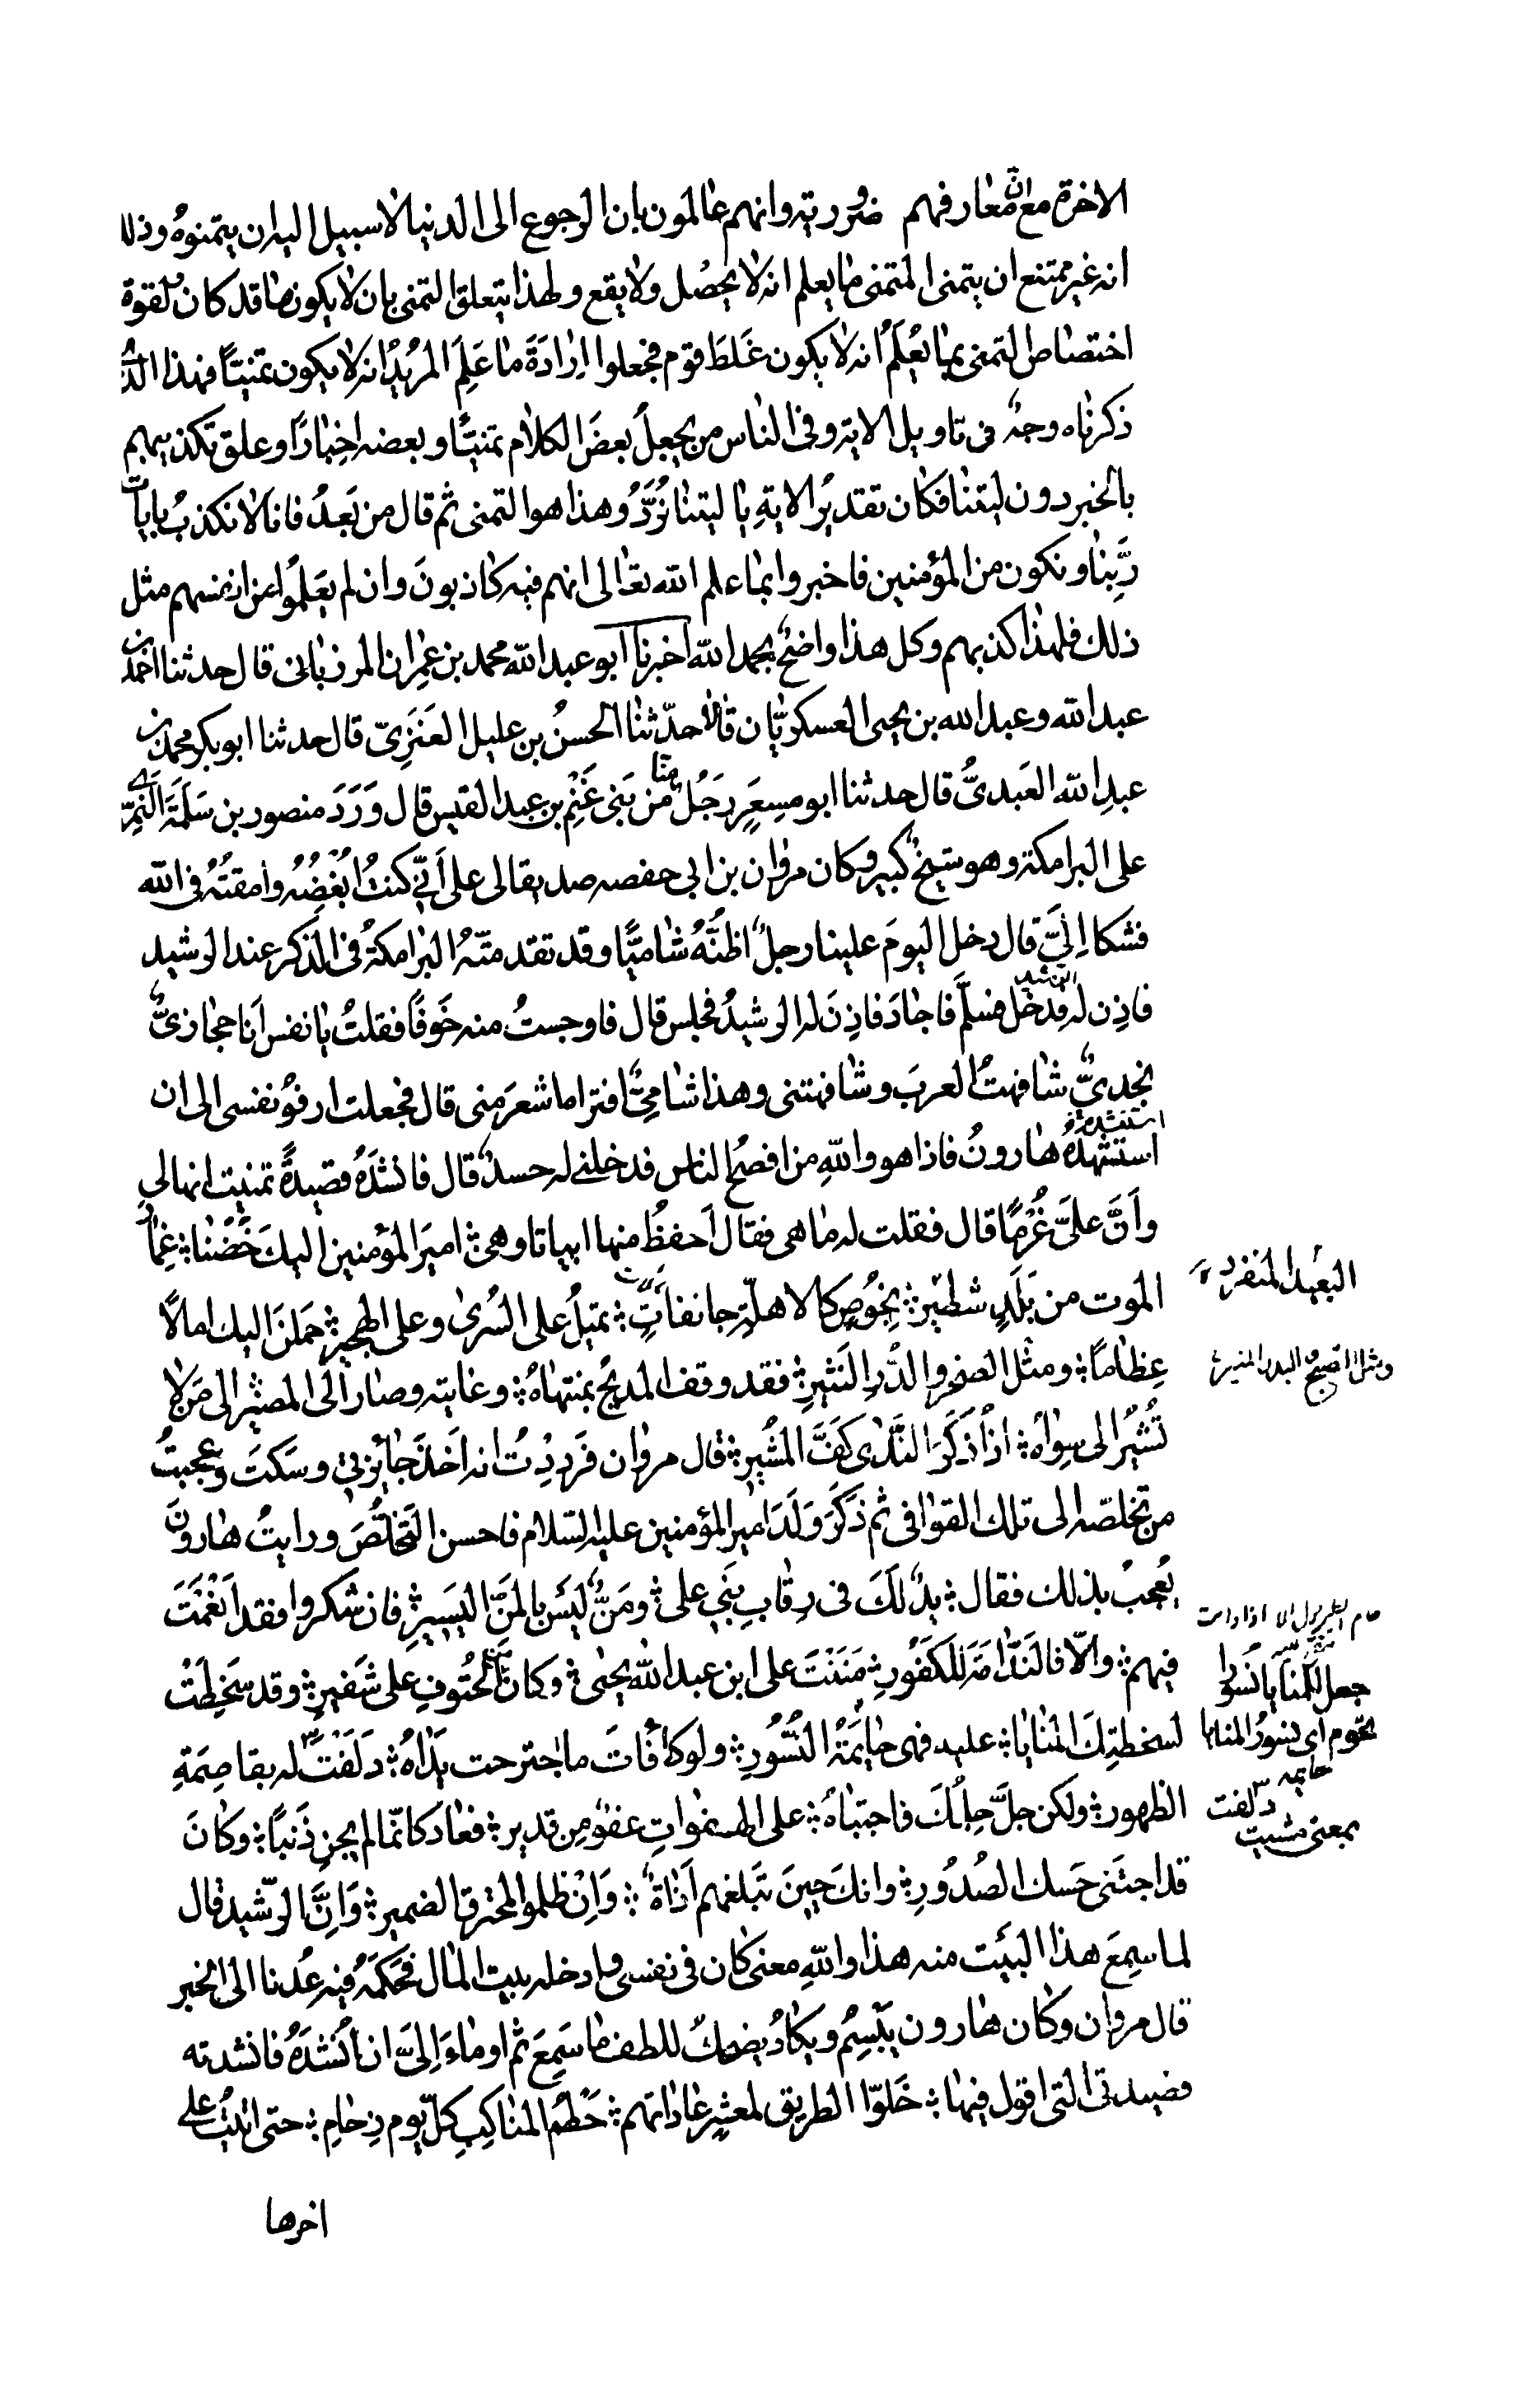 الاخرة مع انّ معارفهم ضرورية وانهم عالمون بان الرجوع الى الدنيا لا سبيل اليه ان يتمنوهُ وذلك
انه غير ممتنع ان يتمنى المتمنى ما يعلم انه لا يحصُل ولا يقع ولهذا يتعلق التمنى بان لا يكون ما قد كان ولقوة
اختصاص التمنى بما يُعلَمُ انه لا يكون غَلَطَ قوم فجعلوا اِرادَةَ ما عَلِمَ المُريدُ انه لا يكون تمنيًا فهذا الذى
ذكرناه وجهٌ فى تاويل الاية وفى الناس من يجعلُ بعضَ الكلام تمنيًا وبعضه اخِبارًا وعلق تكذيبهم
بالخبر دون ليتنا فكان تقديرُ الايةِ يا ليتنا نُرَدُّ وهذا هو التمنى ثم قال من بَعدُ فانا لا نكذبُ بايات
رَبِّنا ونكون من المؤمنين فاخبروا بما علم الله تعالى انهم فيه كاذبونَ وان لم يَعَلموُا من انفسهم مثل
ذلك فلهذا كذبهم وكل هذا واضحٌ بحمد الله اخبرنا ابو عبد الله محمد بن عِمران المرزبانى قال حدثنا احمد بن
عبد الله وعبد الله بن يحيى العسكريّان قالا حدّثنا الحسنُ بن عليل العَنَزِىّ قال حدثنا ابو بكر محمد بن
عبدِ الله العَبدىُّ قال حدثنا ابو مسِعَرٍ رَجَلٌ منّا من بَنى غَنْمِ بن عبد القيس قال وَرَدَ منصور بن سَلَمَةَ النَّمِرىّ
على البرامكة وهو شيخٌ كبير وكان مروان بن ابى حفصه صديقا لى على اَنّى كنتُ اُبْغِضُهُ وامقتُهُ فى الله
فشكا اِلىَّ قال دخل اليومَ علينا رجلٌ اظنُّهُ شاميًّا وقد تقدمتّهُ البرامكةُ فى الذكر عند الرشيد
فاذِن له الرشيد فدخل فسلّمَ فاجادَ فاذِنَ له الرشيدُ فجلس قال فاوجستُ منه خَوفًا فقلتُ يا نفس اَنا حجازىٌّ
نجدىٌّ شافهتُ العربَ وشافهتنى وهذا شامىٌّ افتراه اشعرَ منى قال فجعلت ارفوُ نفسى الى ان
استنشدهُ هارونُ فاذا هو واللهِ من افصَحُ الناس فدخلنى له حسدٌ قال فانشَدَهُ قصيدةً تمنيت انها لى
وأَنَّ علىَّ غُرمًا قال فقلت له ما هى فقال اَحفظُ منها ابياتا وهى اميرَ المؤمنين اليكَ خُضْنا غِمارَ
الموت من بَلَدٍ شطيرٍ بِخُوصٍ كالاهلّةِ جانفاتٍ تميلُ على السُرى وعلى الهجيرِ حَمَلنَ اليك امالاً
عِظامًا ومثل الصخر والدُّرِ النَثيرِ فقد وقف المديحُ بمنتهاهُ وغايته وصار الى المصيرِ الى مَن لا
تُشيُرُ الى سِواهُ اذا ذُكَرَ النَّدى كَفَّ المُشيرِ قال مروان فَوَدِدْتُ انه اَخَذَ جائزتى وسَكتَ وعجبتُ
من تخلصّه الى تلك القوافى ثم ذَكَرَ وَلَدَ امير المؤمنين عليه السّلام فاحسن التخلُّصَ ورايتُ هارونَ
يُعجبُ بذلك فقال يدٌ لَكَ فى رِقابِ بنَى على ومَنٌّ ليسَ بالمنّ اليَسيِرِ فان شكروا فقد اَنْعْمَتَ
فيهم والاّ فالنَّدامَةُ للكَفُورِ مَنَنْتَ على ابن عبد الله يحيى وكانَ من الحُتوفِ على شَفيرِ وقد سَخِطَتْ
لسخطتِكَ المَنايا عليه فهى حائمَةُ النُّسُورِ ولو كافاتَ ما اجترحت يَداهُ دَلَفْتَ له بقاصِمَةِ
الظهورِ ولكن جلَّ حِلمُكَ فاجتباهُ على الهفواتِ عفوٌ مِن قديرِ فعادَ كانّما لم يجنِ ذَنبًا وكانَ
قد اجتَنى حَسك الصُدُورِ وانكَ حينَ تبَلغهم اَذاةٌ وَاِنْ ظلموا لمحترقُ الضميرِ وَاِنَّ الرّشيدَ قال
لما سِمعَ هذا البَيت منه هذا واللهِ معنى كان فى نفسى وادخله بيت المال فحكَّمَهُ فيه عُدنا الى الخبر
قال مروان وكان هارون يبَسِمُ ويكادُ يضحكُ للطف ما سَمِعَ ثم اوماءَ اِلىَّ ان اُنشدَهُ فانشدته
قصيدتى التى اقول فيها خَلّوا الطريق لمعشرٍ عاداتهم حَطْمُ المناكِبِ كلّ يوم زِحامِ حتى اتيتُ على
اخرها
البعُيد المنفرد
ومثل الصبح البدر المنير
حام الطير
جعل للمنايا نسورا
تحوم اى نسورُ المنايا
حايمه
دلفت
بمعنى مشيت